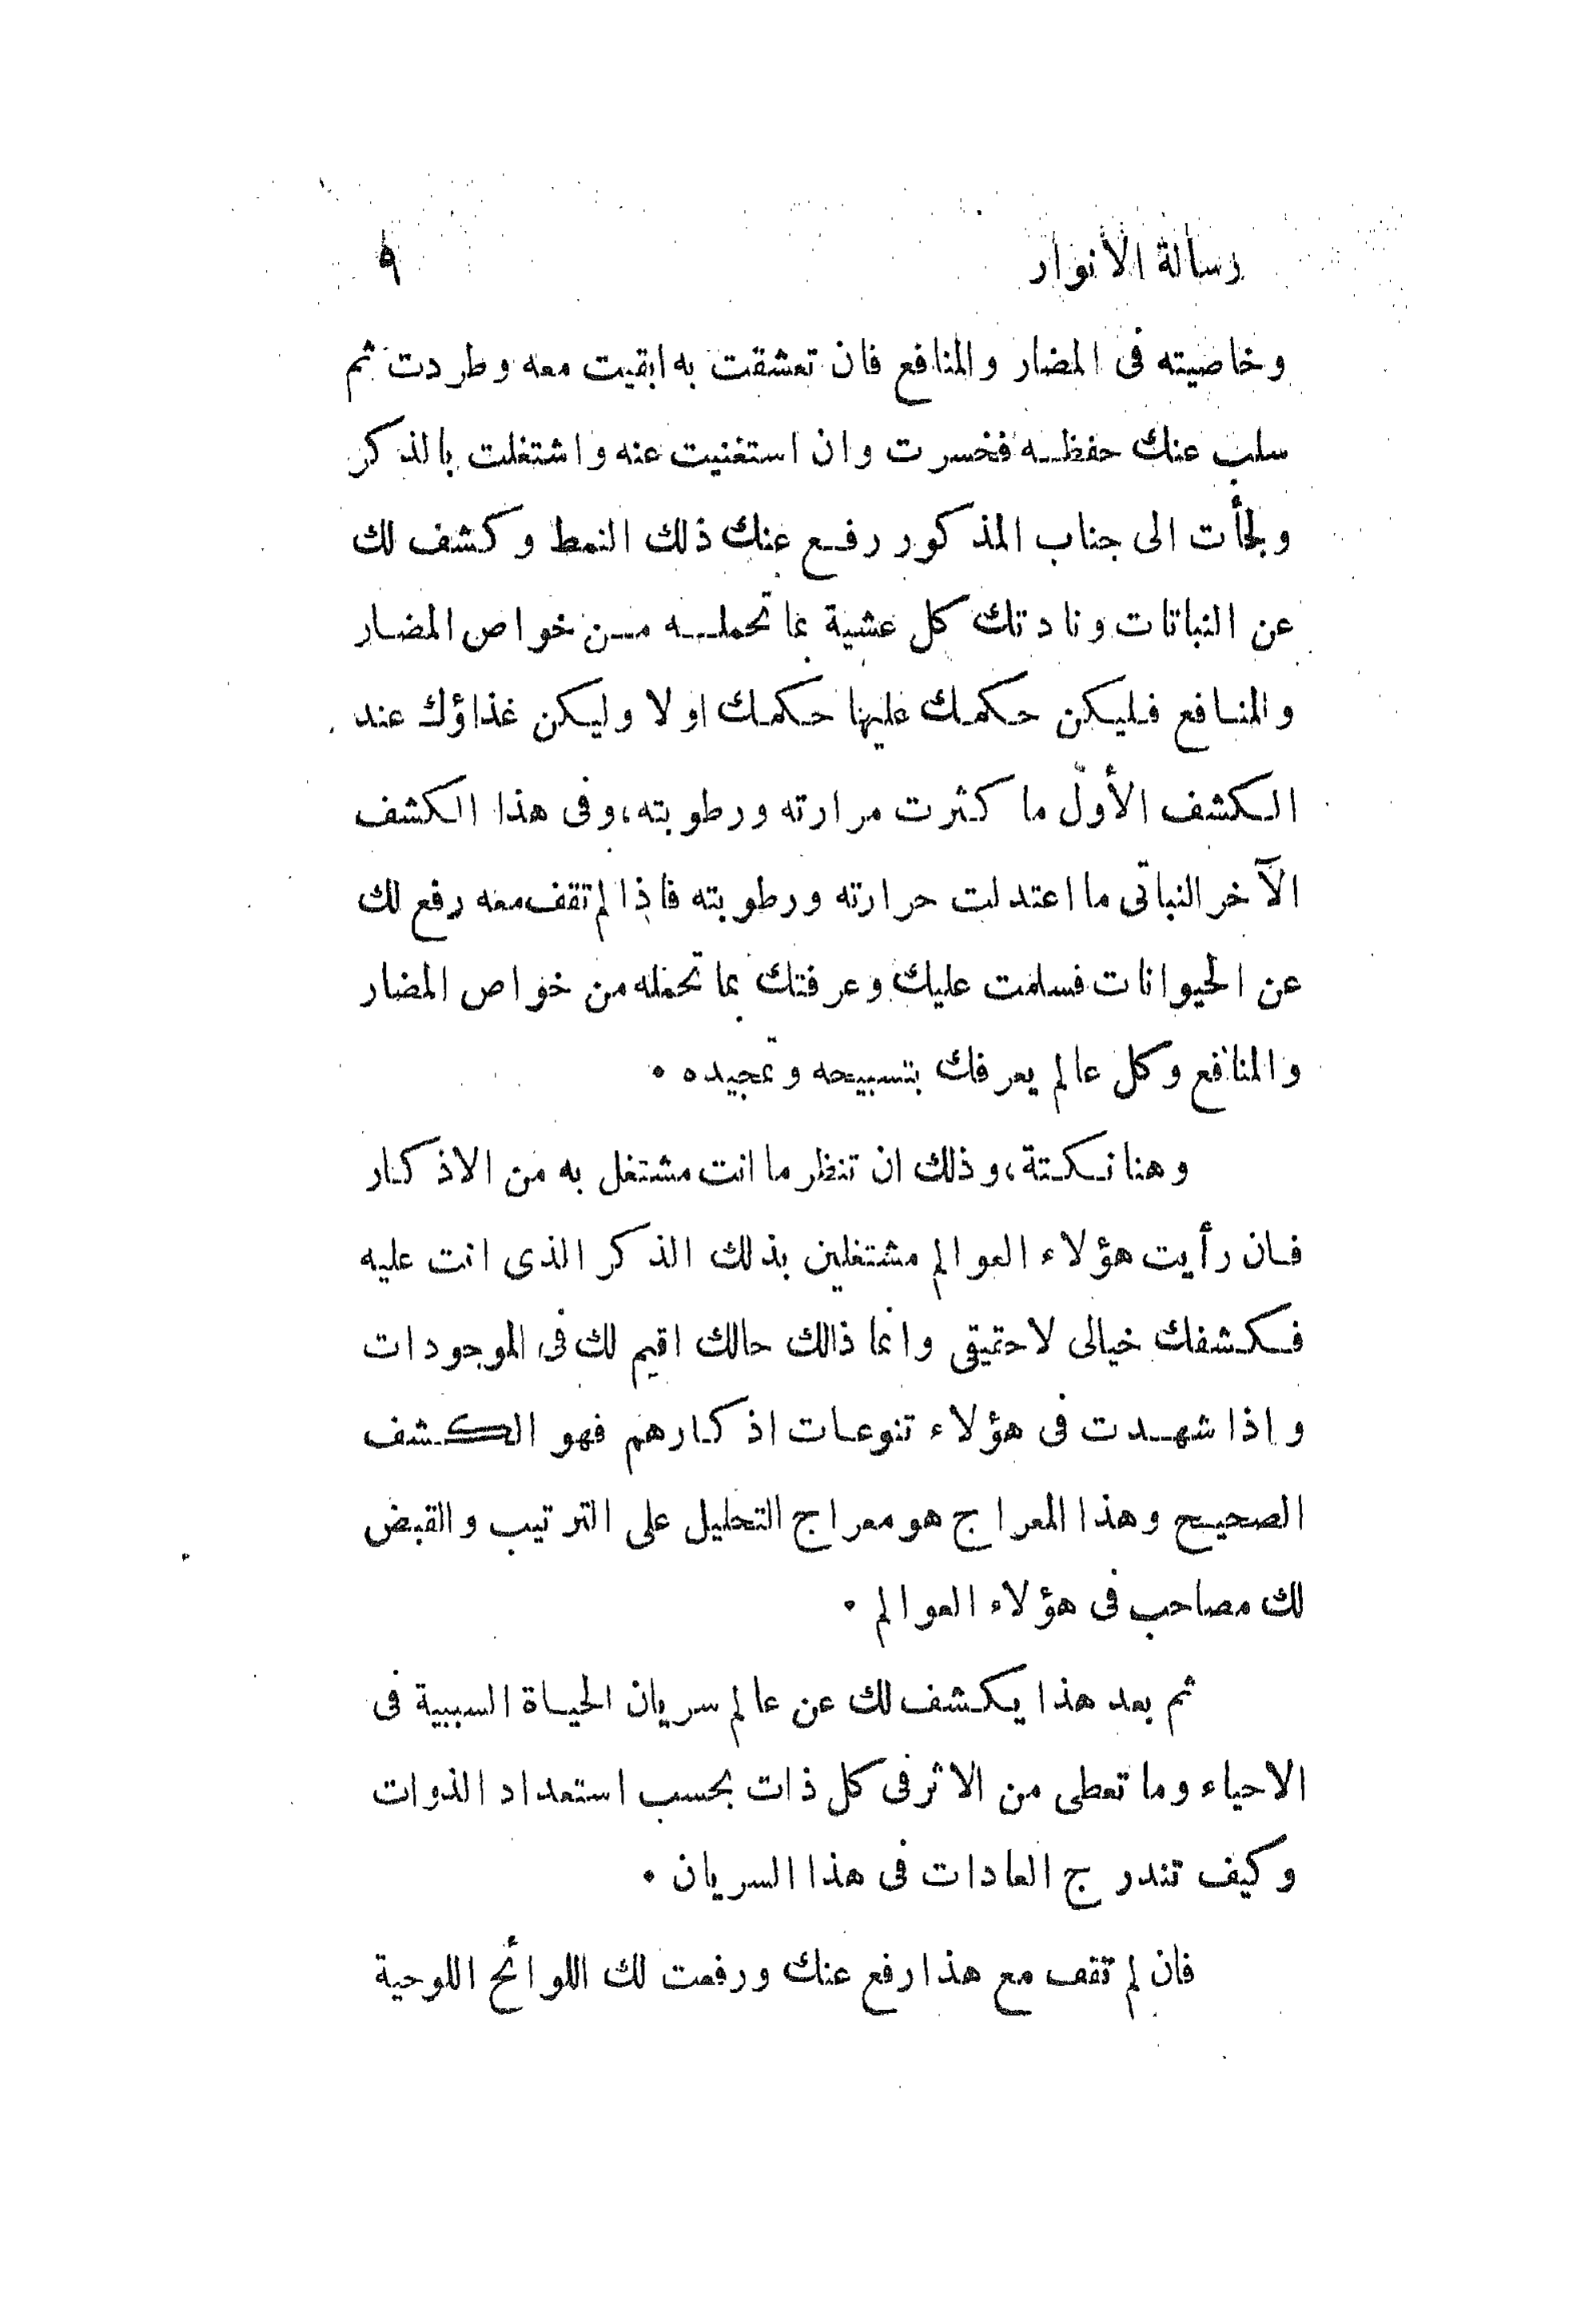 رسالة الأنوار ٩
وخاصيته فى المضار والمنافع فان تعشقت به ابقيت معه وطردت ثم
سلب عنك حفظه فخسرت وان استغنيت عنه واشتغلت بالذكر
ولجأت الى جناب المذكور رفع عنك ذلك النمط وكشف لك
عن النباتات ونادتك كل عشية بما تحمله من خواص المضار
والمنافع فليكن حكمك عليها حكمك اولا وليكن غذاؤك عند
الكشف الأوّل ما كثرت مرارته ورطوبته، وفى هذا الكشف
الآخر النباتى ما اعتدلت حرارته ورطوبته فاذا لم تقف معه رفع لك
عن الحيوانات فسلمت عليك وعرفتك بما تحمله من خواص المضار
والمنافع وكل عالم يعرفك بتسبيحه وتمجيده ٠
وهنا نكتة، وذلك ان تنظر ما انت مشتغل به من الاذكار
فان رأيت هؤلاء العوالم مشتغلين بذلك الذكر الذى انت عليه
فكشفك خيالى لا حقيقى وانما ذالك حالك اقيم لك فى الموجودات
واذا شهدت فى هؤلاء تنوعات اذكارهم فهو الكشف
الصحيح وهذا المعراج هو معراج التحليل على الترتيب والقبض
لك مصاحب فى هؤلاء العوالم ٠
ثم بعد هذا يكشف لك عن عالم سريان الحياة السببية فى
الاحياء وما تعطى من الاثر فى كل ذات بحسب استعداد الذوات
وكيف تندرج العادات فى هذا السريان ٠
فان لم تقف مع هذا رفع عنك ورفعت لك اللوائح اللوحية